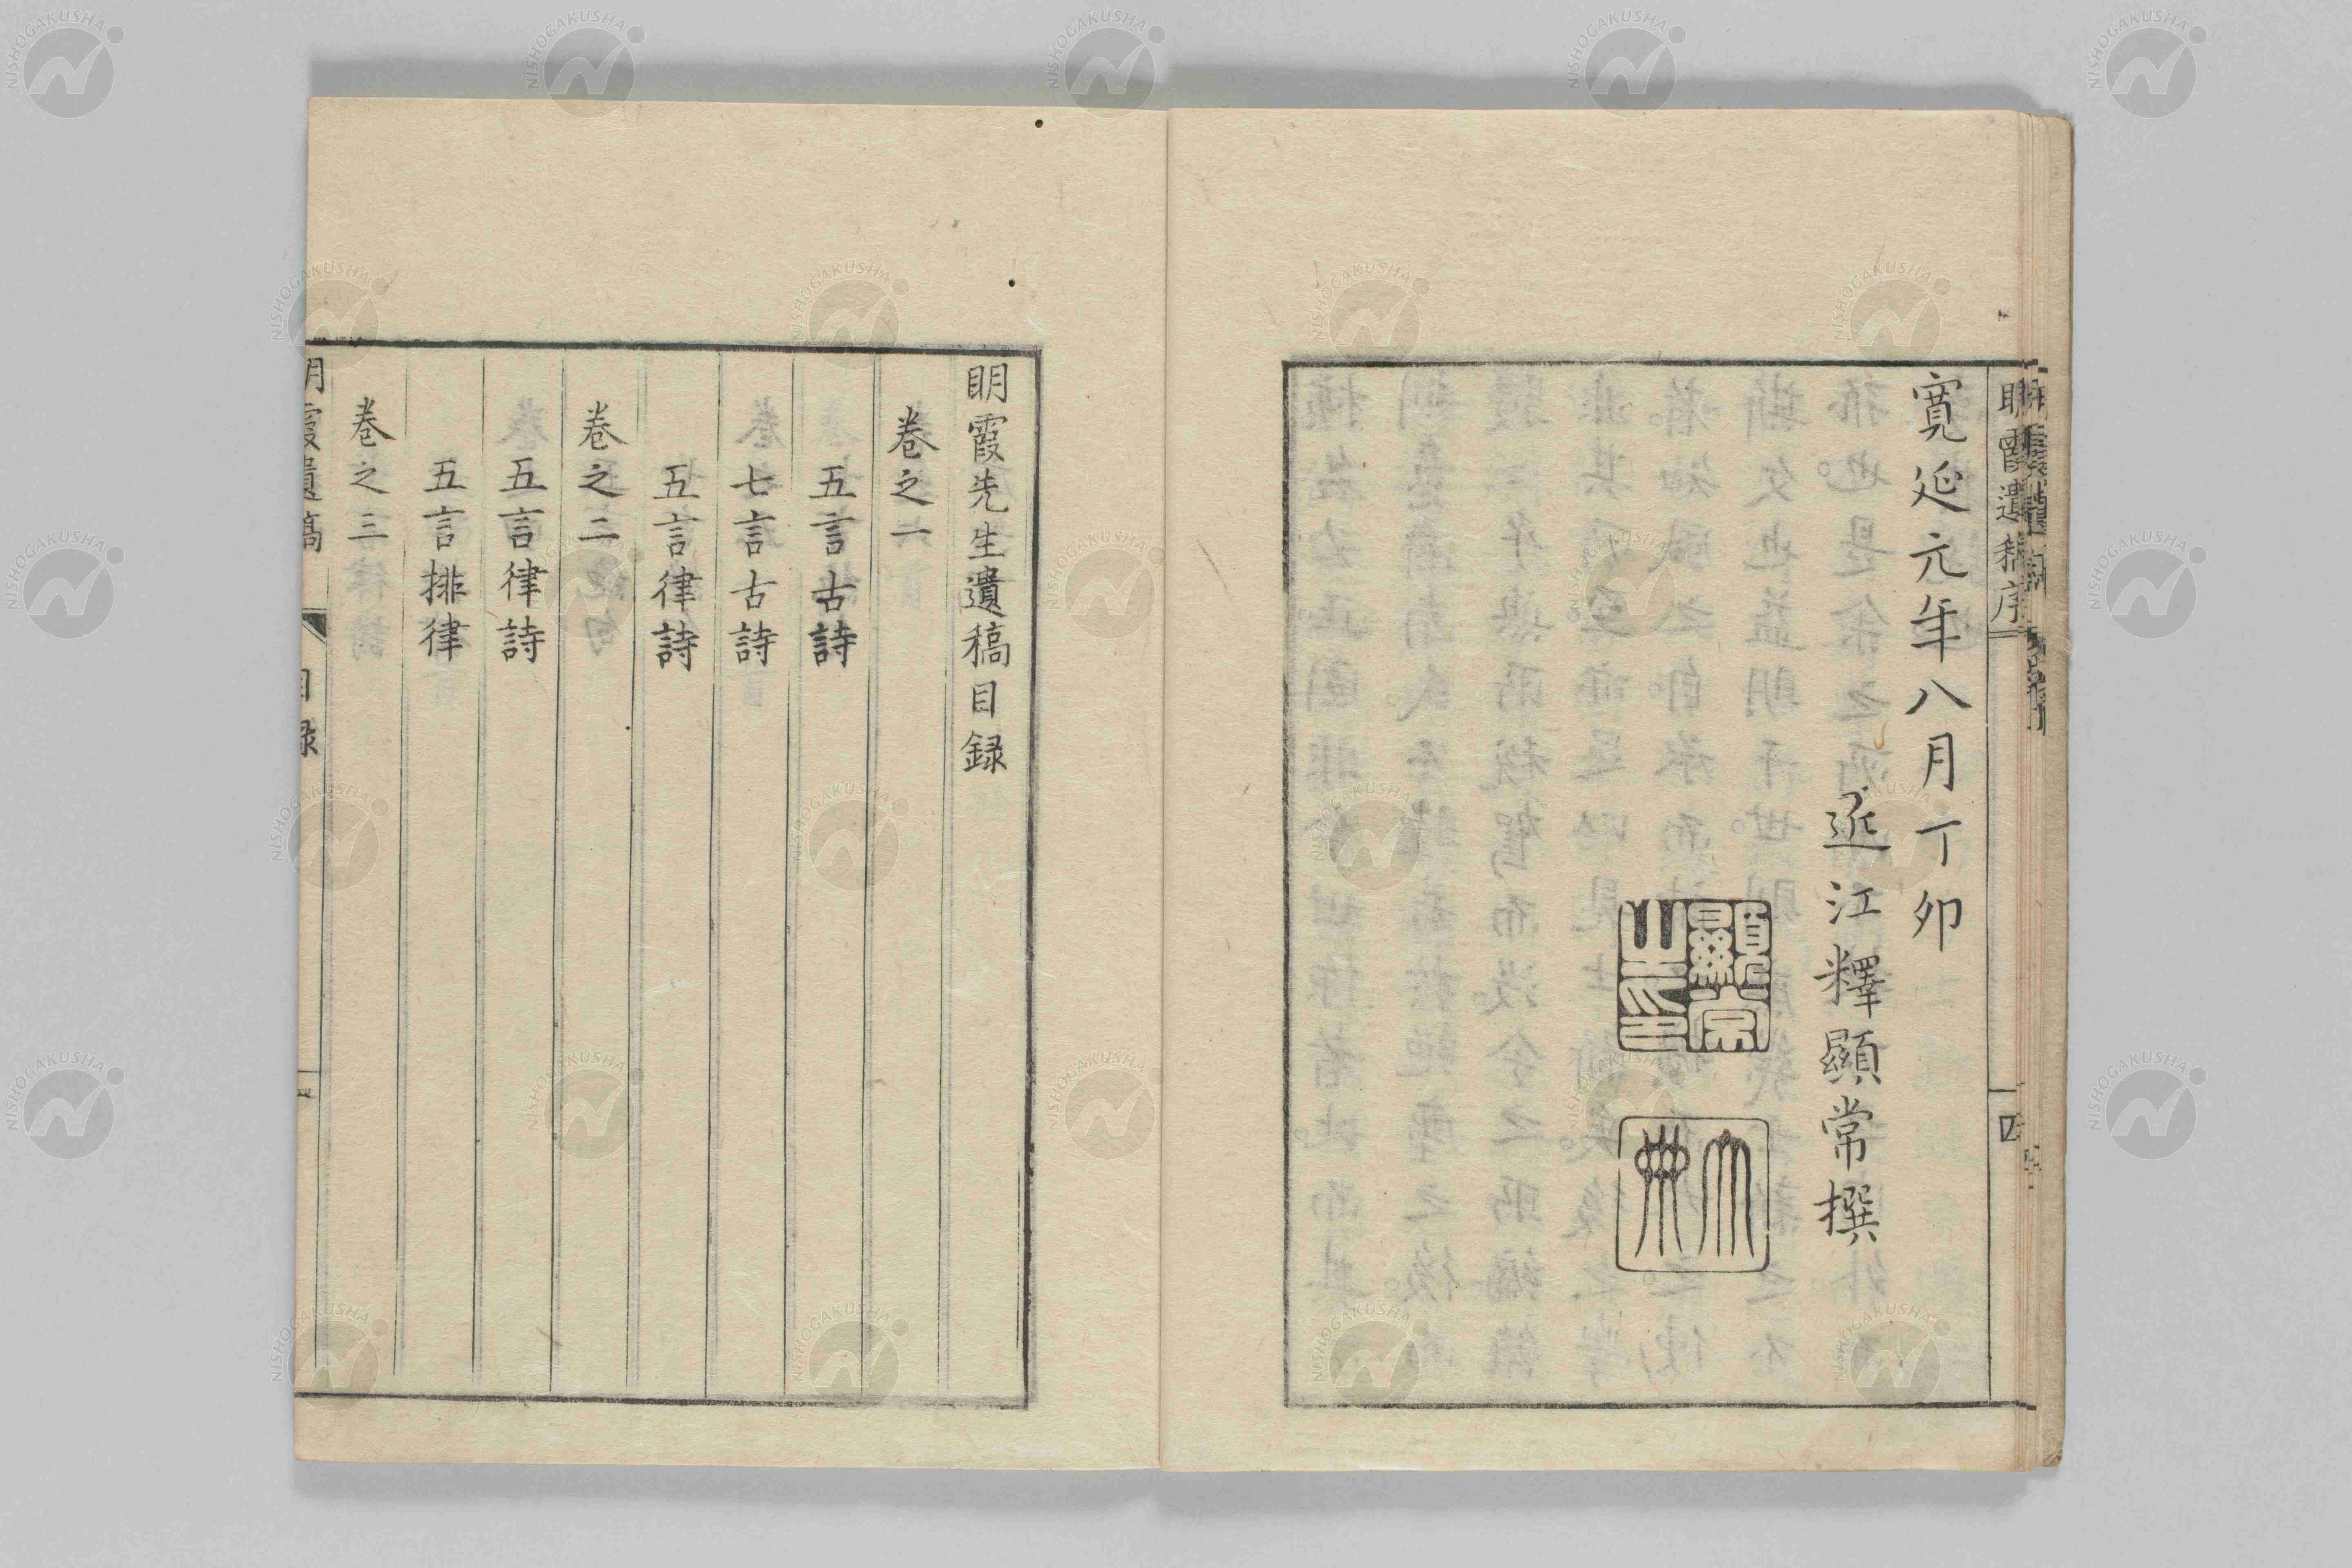 明霞遺稿序
四
寛延元年八月丁卯
近江釋顯常撰
顯常之印
大典
明霞先生遺稿目録
卷之一
五言古詩
七言古詩
五言律詩
卷之二
五言律詩
五言排律
卷之三
明霞遺稿
目録
一
NISHOGAKUSHA